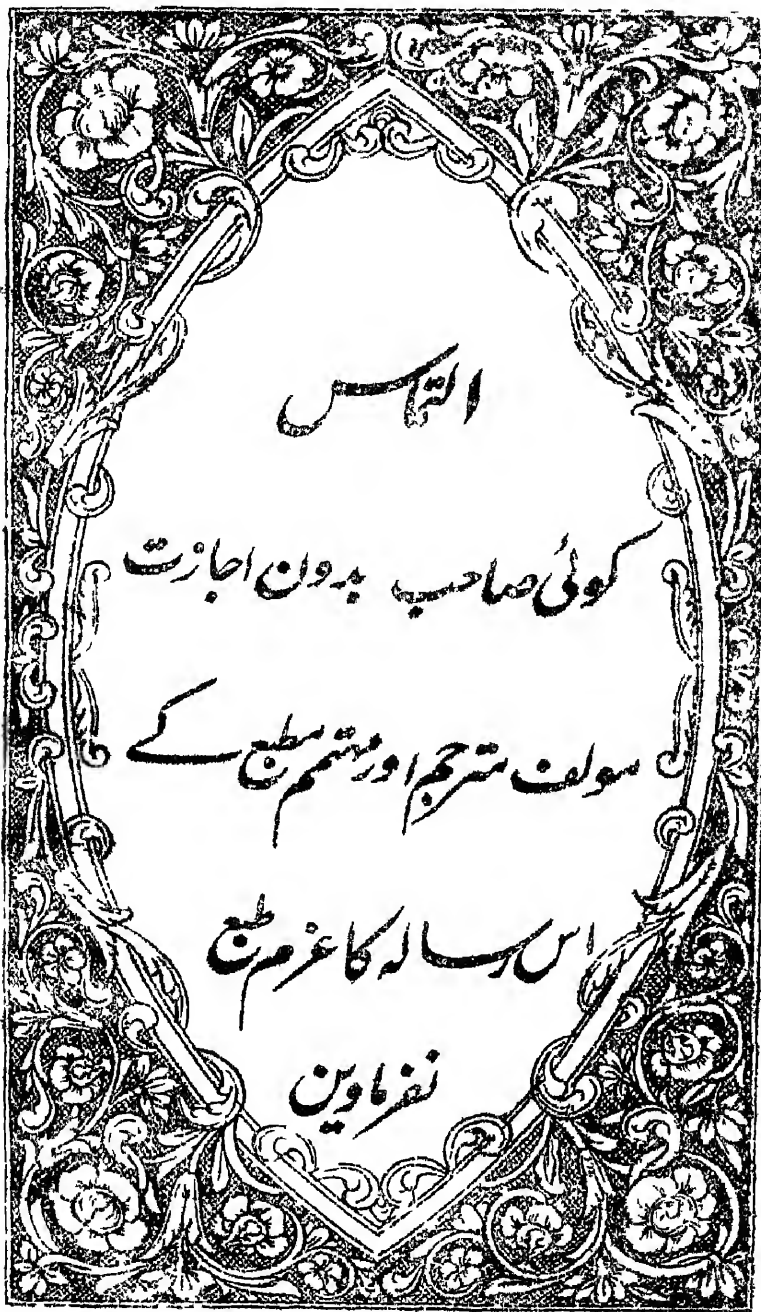 التماس
کوئی صاحب بدون اجازت
مولف مترجم اور مہتمم مطبع کے
اس رسالہ کا عزم طبع
نفرماوین